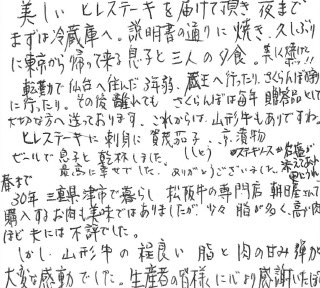 美しい ヒレステーキを届けて頂き 夜まで
まずは冷蔵庫へ。説明書の通りに焼き、久しぶり
に東京から帰って来る息子と三人の夕食。美しく焼けた!!
転勤で仙台へ住んだ3年弱、蔵王へ行ったり、さくらんぼ狩り
に行ったり。その後離れても さくらんぼは毎年 贈答品として
大切な方へ送っております、これからは、山形牛もありですね。
ヒレステーキに刺身に賀茂茄子、京漬物
ししとう
ビールで息子と乾杯しました。
最高に幸せでした。ありがとうございました。
春まで
30年 三重県津市で暮らし 松阪牛の専門店 朝日屋さんで
購入するお肉も美味ではありましたが 少々 脂が多く、高い肉
ほど夫には不評でした。
しかし 山形牛の程良い 脂と肉の甘み弾力
大変な感動でした。生産者の皆様に心より感謝いたし